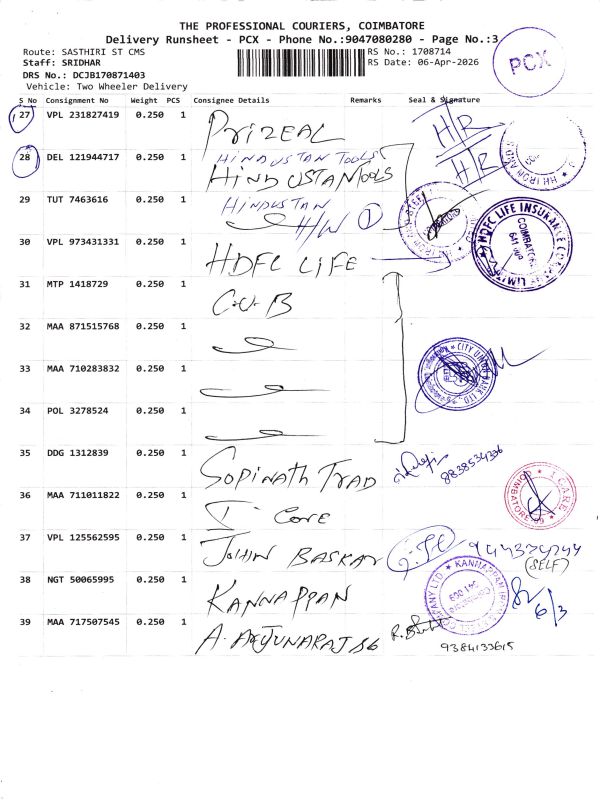 THE PROFESSIONAL COURIERS, COIMBATORE
Delivery Runsheet - PCX - Phone No.:9047080280 - Page No.:3
Route: SASTHIRI ST CMS
RS No.: 1708714
Staff: SRIDHAR
RS Date: 06-Apr-2026
DRS No.: DCJB170871403
Vehicle: Two Wheeler Delivery
PCX
S No Consignment No Weight PCS Consignee Details Remarks Seal & Signature
27 VPL 231827419 0.250 1 PRIZEAL H/R
28 DEL 121944717 0.250 1 HINDUSTAN TOOLS H/R
HINDUSTAN TOOLS
29 TUT 7463616 0.250 1 HINDUSTAN
H/W 1
30 VPL 973431331 0.250 1 HDFC LIFE
HDFC LIFE INSURANCE COMPANY LIMITED
COIMBATORE
31 MTP 1418729 0.250 1 C.U.B
32 MAA 871515768 0.250 1
CITY UNION BANK LTD.
33 MAA 710283832 0.250 1
34 POL 3278524 0.250 1
35 DDG 1312839 0.250 1 GOPINATH TRAD
36 MAA 711011822 0.250 1 I CARE
I CARE
37 VPL 125562595 0.250 1 JOHIN BASKAR
(SELF)
38 NGT 50065995 0.250 1 KANNAPPAN
6/3
39 MAA 717507545 0.250 1 A. ARJUNARAJ
9384133615